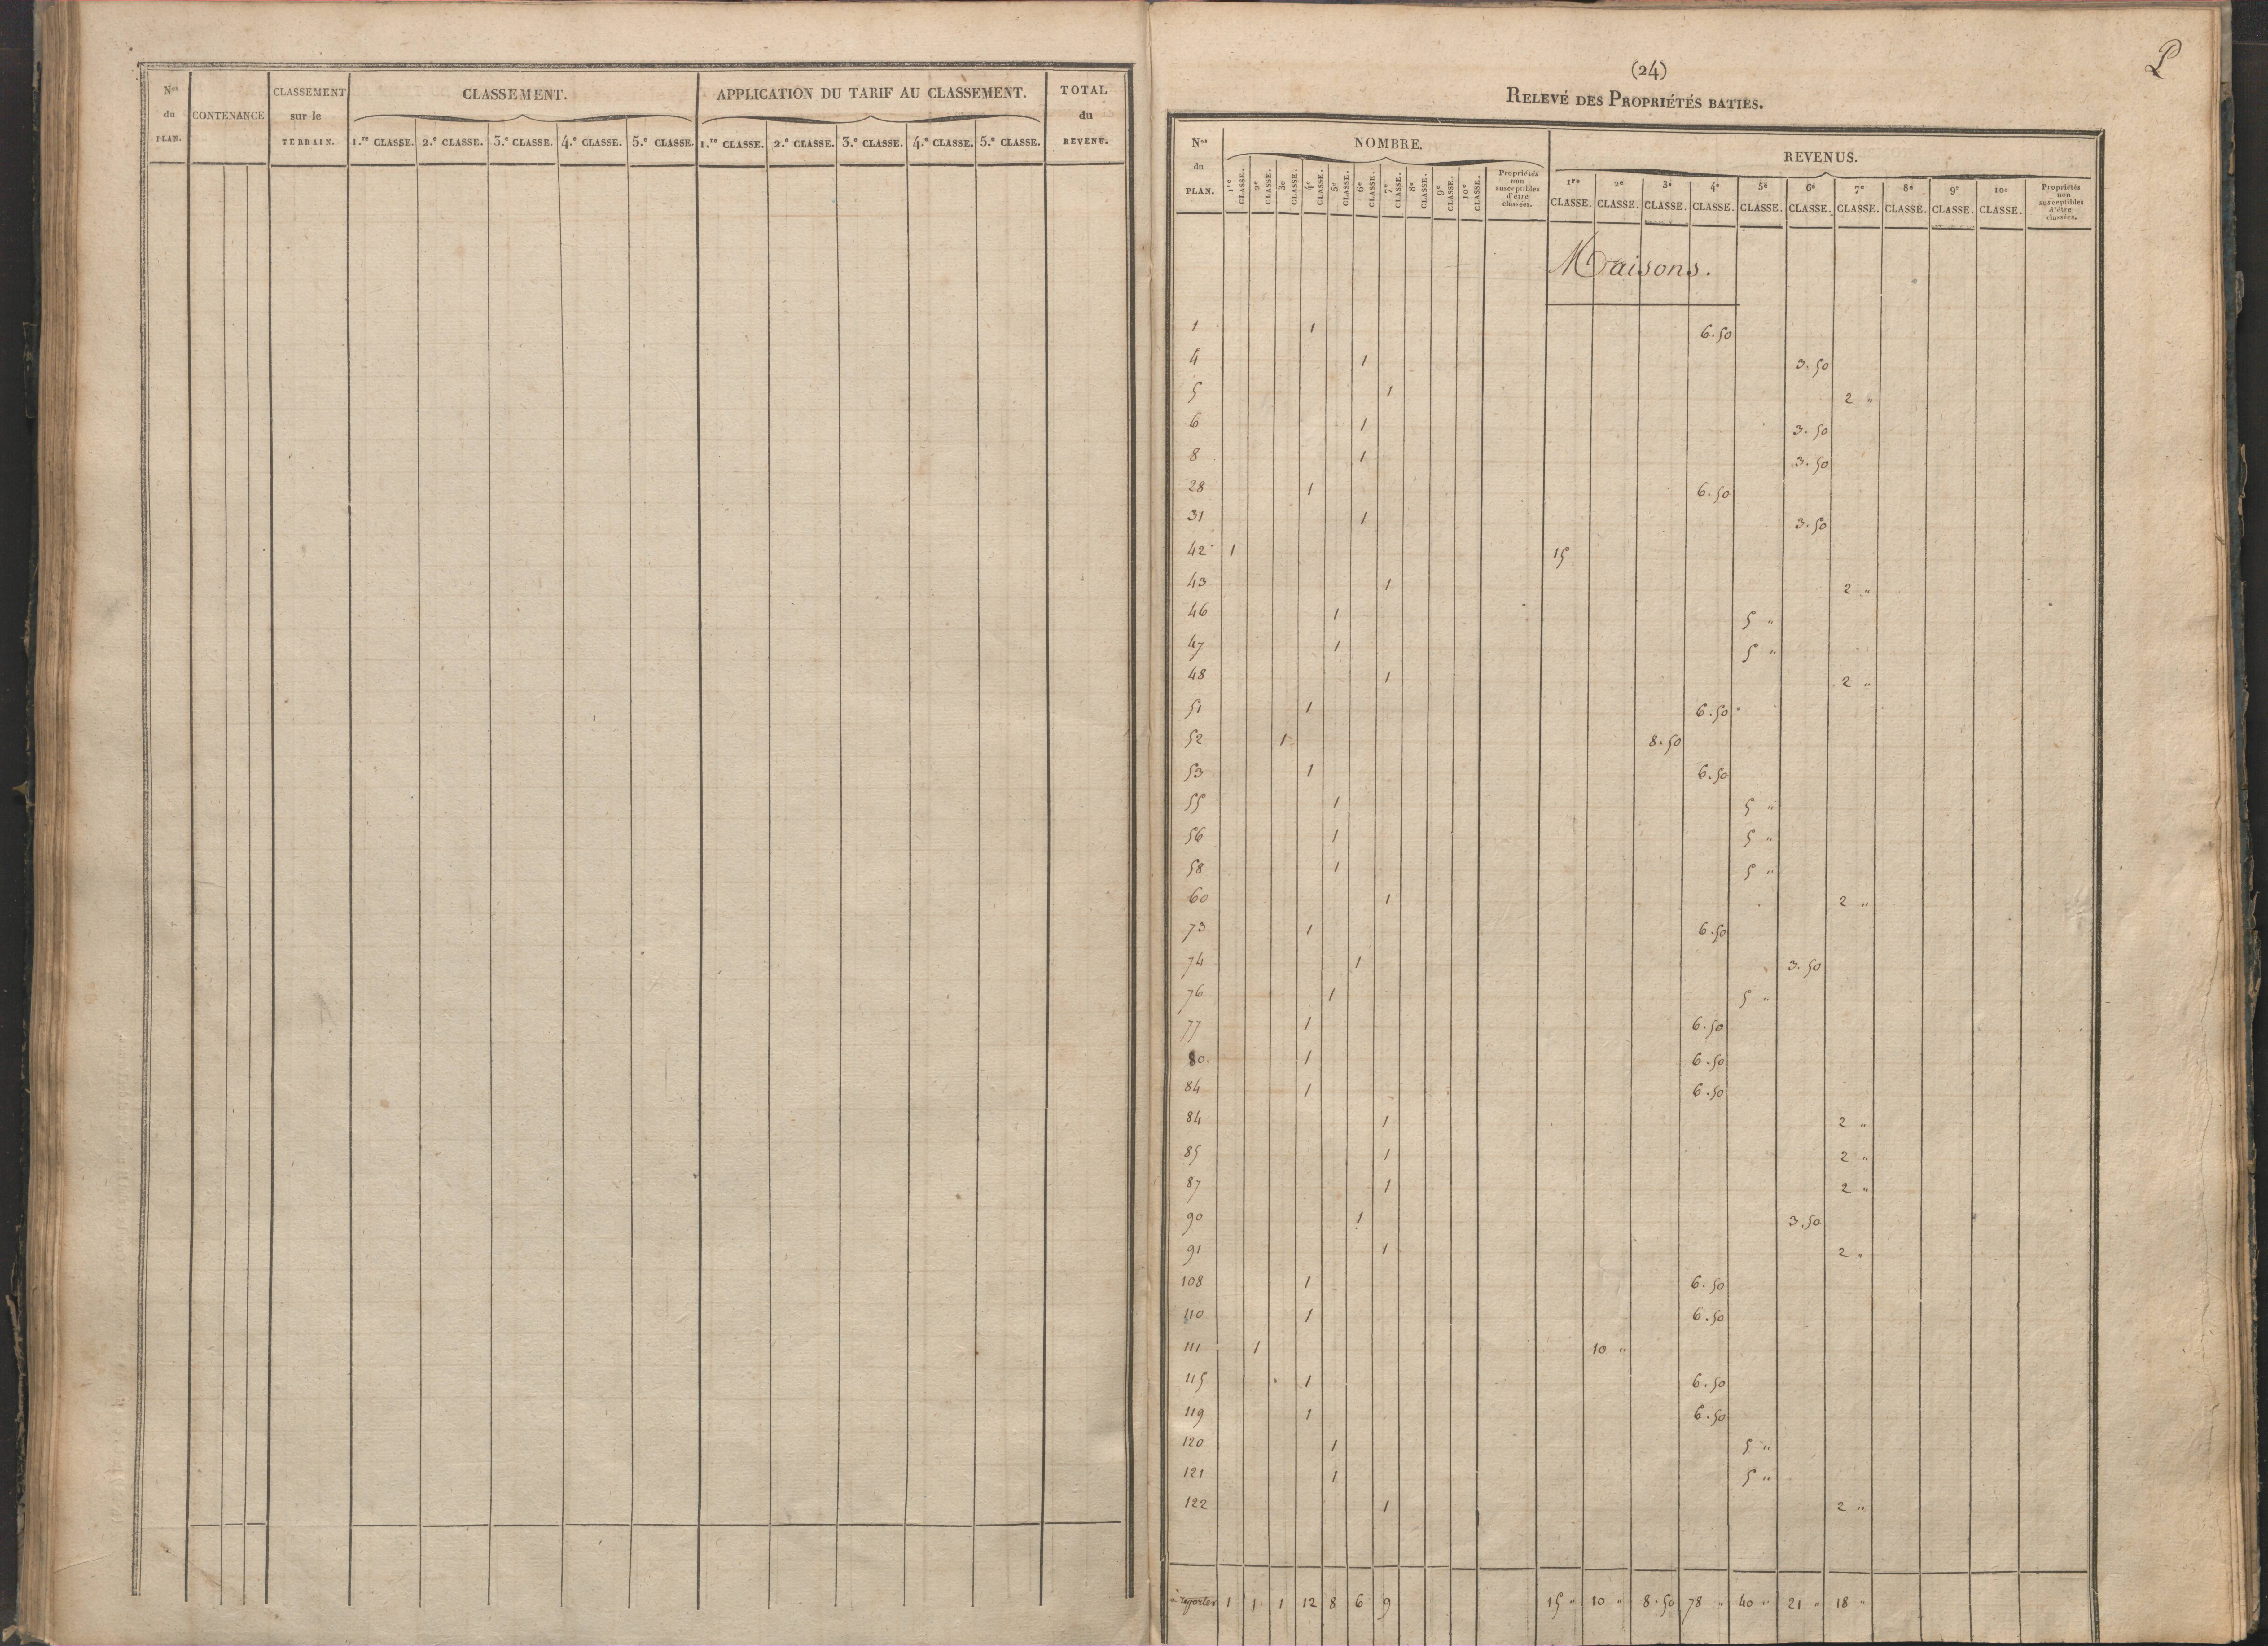 Nos du PLAN.
CONTENANCE
CLASSEMENT sur le TERRAIN.
CLASSEMENT.
1.re CLASSE. 2.e CLASSE. 3.e CLASSE. 4.e CLASSE. 5.e CLASSE.
APPLICATION DU TARIF AU CLASSEMENT.
1.re CLASSE. 2.e CLASSE. 3.e CLASSE. 4.e CLASSE. 5.e CLASSE.
TOTAL du REVENU.
(24)
RELEVÉ DES PROPRIÉTÉS BATIES.
Nos du PLAN.
NOMBRE.
1re CLASSE. 2e CLASSE. 3e CLASSE. 4e CLASSE. 5e CLASSE. 6e CLASSE. 7e CLASSE. 8e CLASSE. 9e CLASSE. 10e CLASSE. Propriétés non susceptibles d'être classées.
REVENUS.
1re CLASSE. 2e CLASSE. 3e CLASSE. 4e CLASSE. 5e CLASSE. 6e CLASSE. 7e CLASSE. 8e CLASSE. 9e CLASSE. 10e CLASSE. Propriétés non susceptibles d'être classées.
Maisons.
1 1 6.50
4 1 3.50
5 1 2 "
6 1 3.50
8 1 3.50
28 1 6.50
31 1 3.50
42 1 15
43 1 2 "
46 1 5 "
47 1 5 "
48 1 2 "
51 1 6.50
52 1 8.50
53 1 6.50
55 1 5 "
56 1 5 "
58 1 5 "
60 1 2 "
73 1 6.50
74 1 3.50
76 1 5 "
77 1 6.50
80 1 6.50
84 1 6.50
84 1 2 "
85 1 2 "
87 1 2 "
90 1 3.50
91 1 2 "
108 1 6.50
110 1 6.50
111 1 10 "
115 1 6.50
119 1 6.50
120 1 5 "
121 1 5 "
122 1 2 "
à reporter 1 1 1 12 8 6 9 15 " 10 " 8.50 78 " 40 " 21 " 18 "